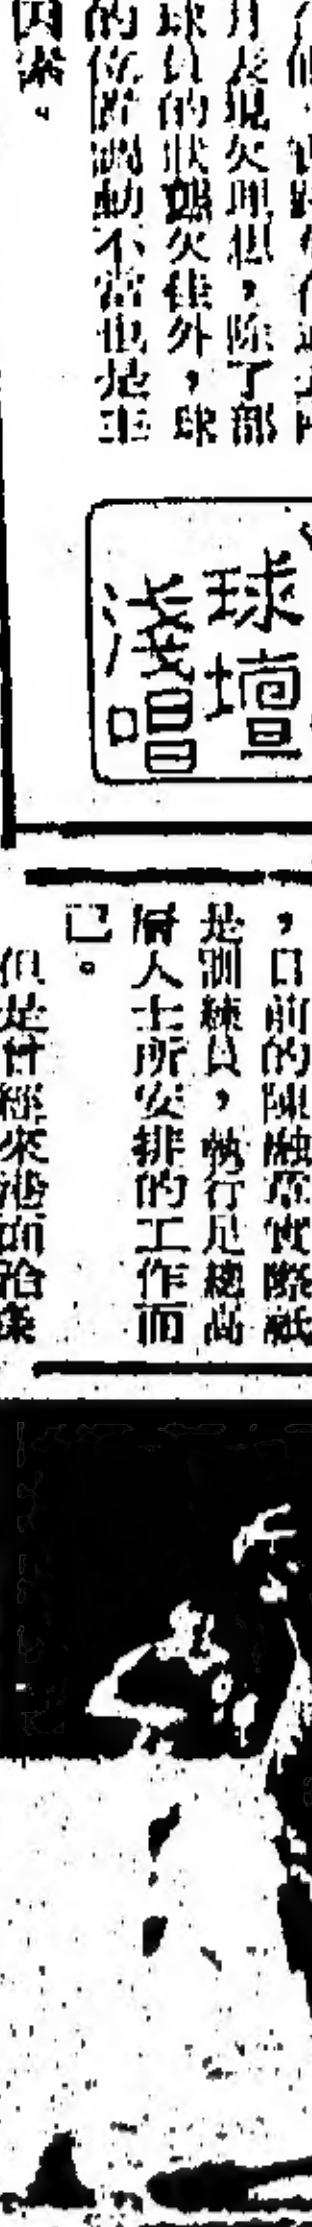 月表現欠理想，除了部
球員的狀態欠佳外，球
的位置調動不當也是主
因素。
球壇
淺唱
，目前的陳融草實際祇
是訓練員，執行足總高
層人士所安排的工作而
已。
但是曾經來港面洽條